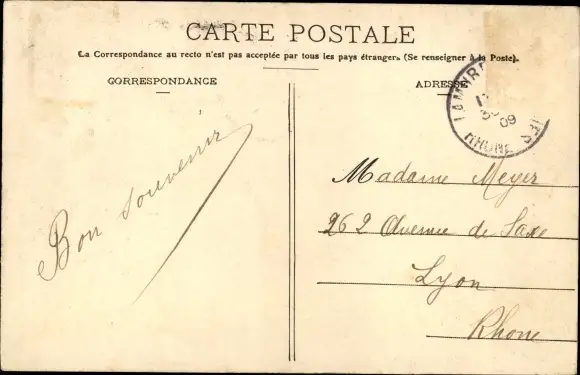 CARTE POSTALE
La Correspondance au recto n'est pas acceptée par tous les pays étrangers (Se renseigner à la Poste).
CORRESPONDANCE
ADRESSE
Bon souvenir
Madame Meyer
262 Avenue de Saxe
Lyon
Rhone
09
RHONE